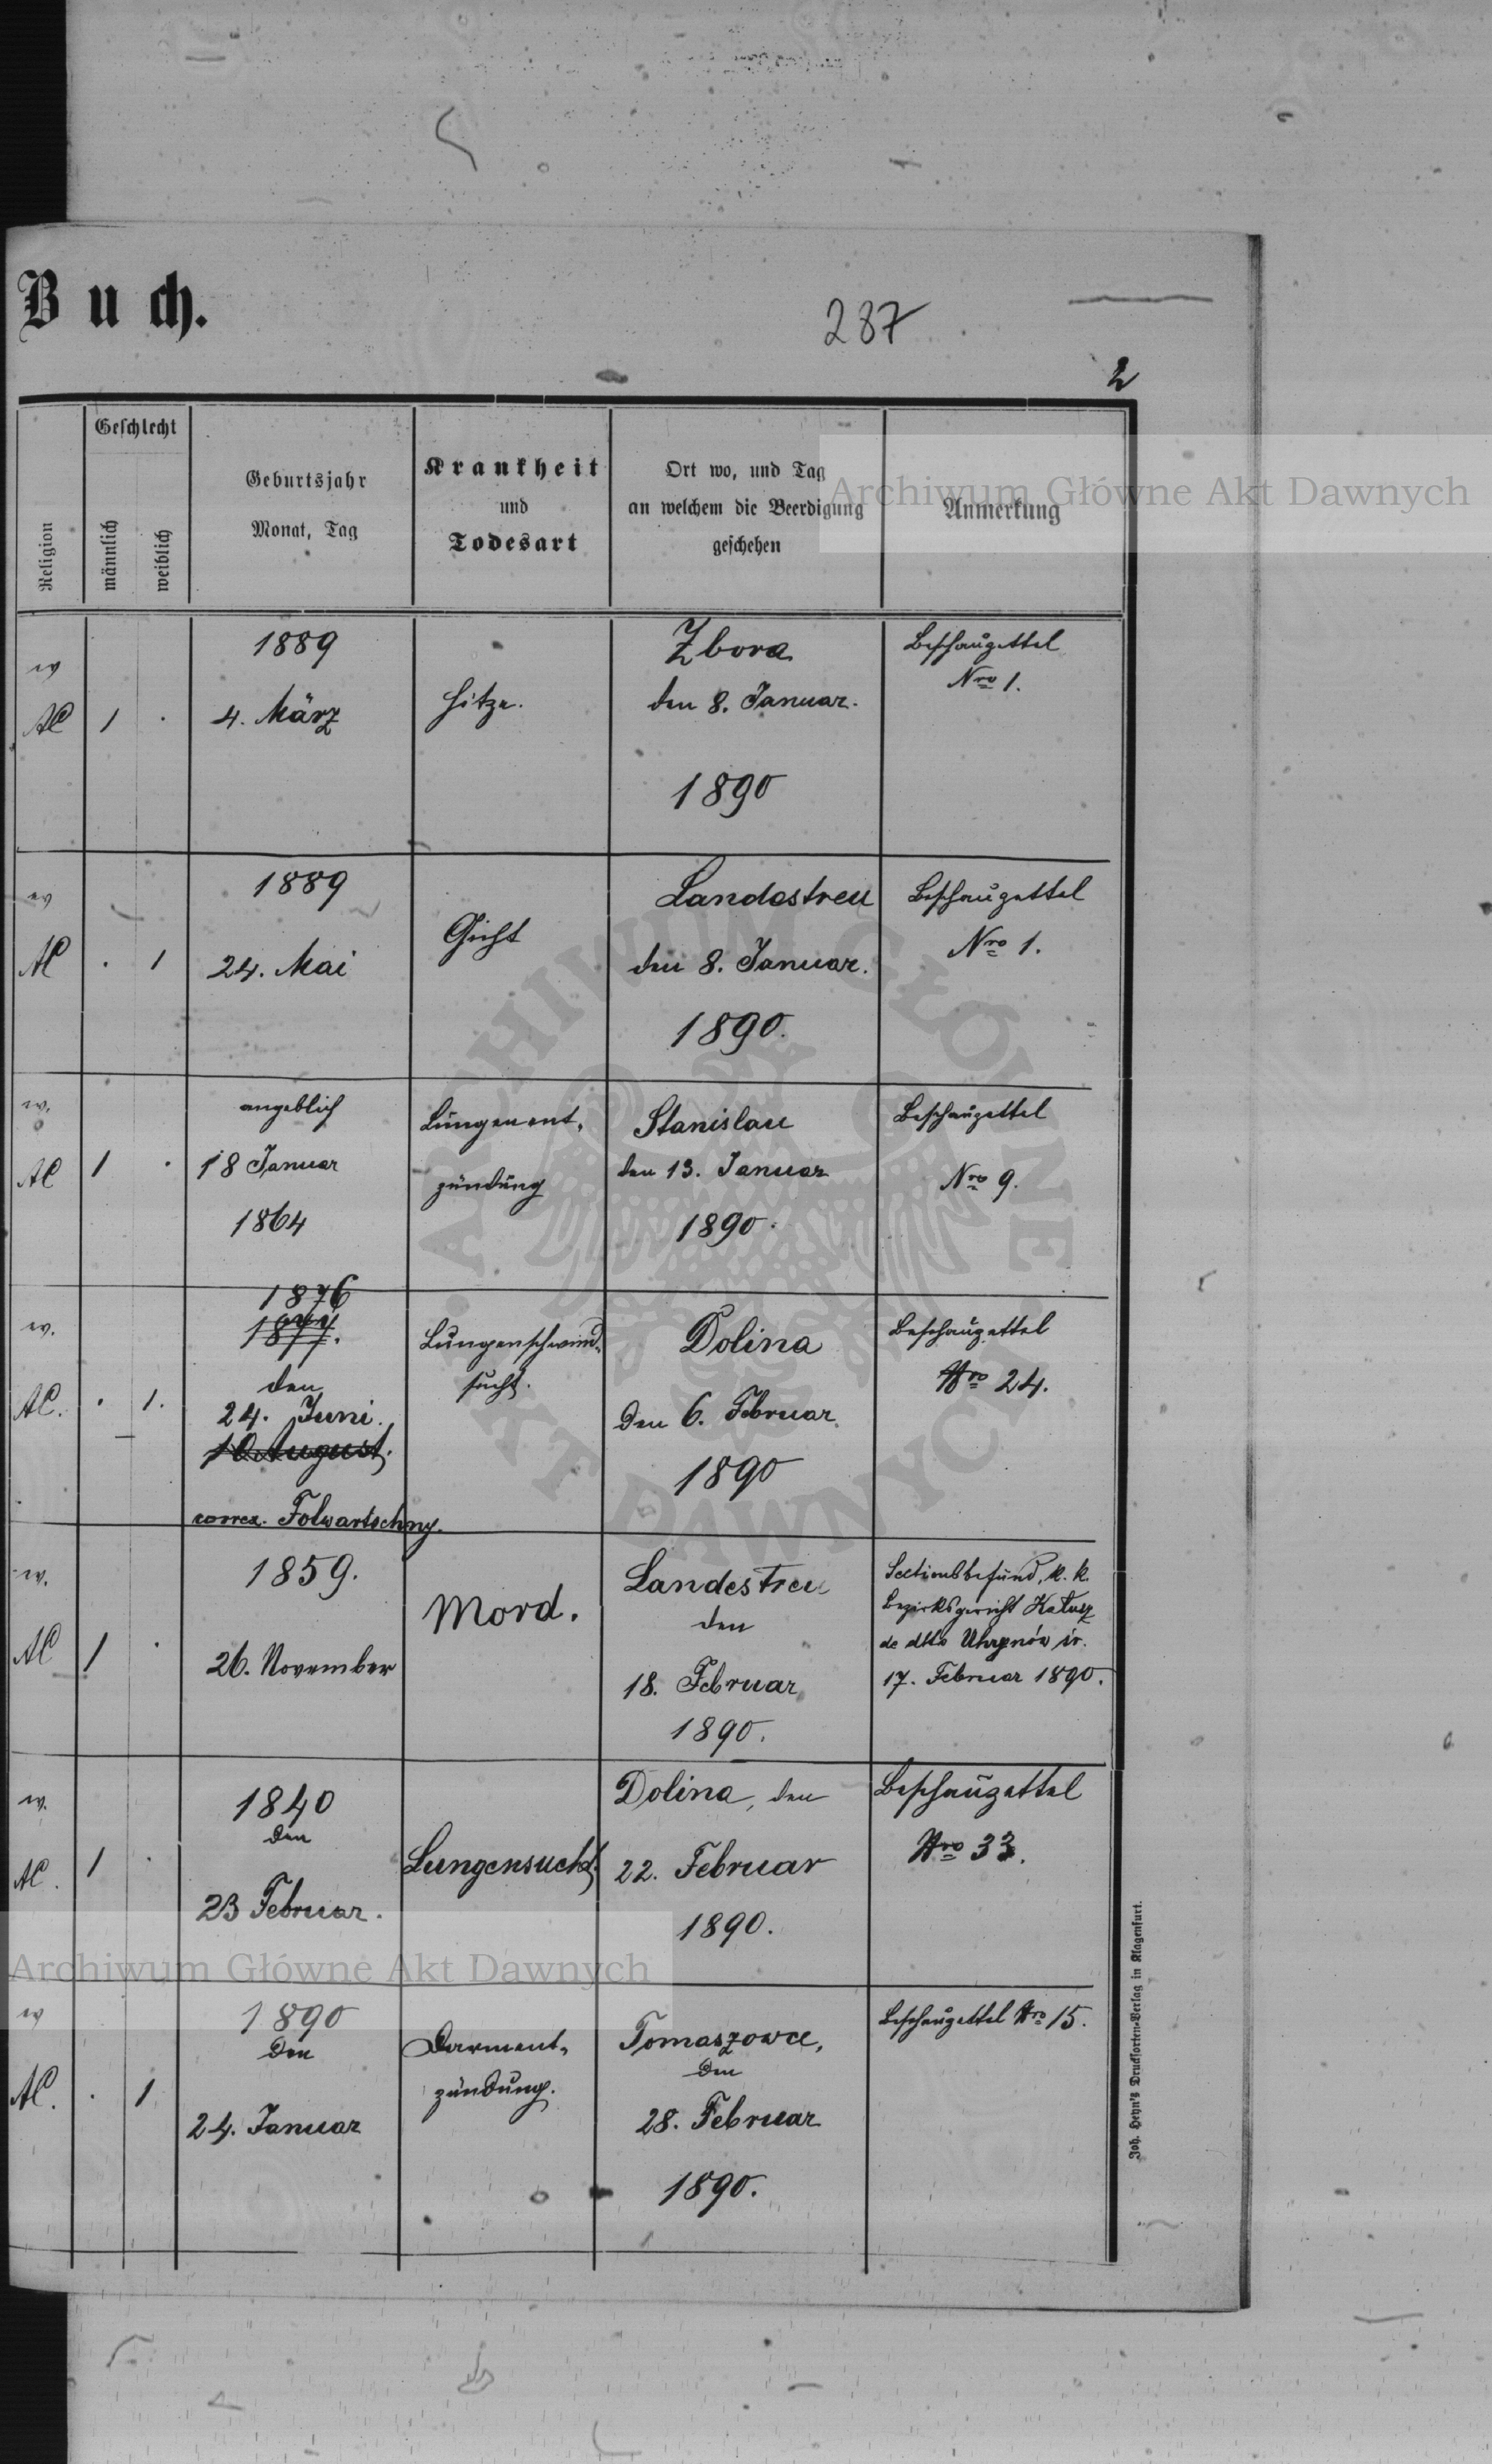 Buch.
287
2
Religion
Geschlecht
männlich
weiblich
Geburtsjahr
Monat, Tag
Krankheit
und
Todesart
Ort wo, und Tag
an welchem die Beerdigung
geschehen
Anmerkung
Archiwum Główne Akt Dawnych
ev
AC
1
.
1889
4. März
Hitze.
Zbora
den 8. Januar.
1890
Beschauzettel
Nro 1.
ev
AC
.
1
1889
24. Mai
Gicht
Landestreu
den 8. Januar.
1890.
Beschauzettel
Nro 1.
ev.
AC
1
.
angeblich
18 Januar
1864
Lungenent-
zündung
Stanislau
den 13. Januar
1890.
Beschauzettel
Nro 9.
ev.
AC.
.
1.
1876
1877.
den
24. Juni.
10 August.
correx. Folwartschny.
Lungenschwind-
sucht.
Dolina
den 6. Februar
1890
Beschauzettel
Nro 24.
ev.
AC
1
.
1859.
26. November
Mord.
Landestreu
den
18. Februar
1890.
Sectionsbefund, k. k.
Bezirksgericht Kałusz
de dtto Uhrynów śr.
17. Februar 1890.
ev.
AC.
1
.
1840
den
23 Februar.
Lungensucht.
Dolina, den
22. Februar
1890.
Beschauzettel
Nro 33.
Archiwum Główne Akt Dawnych
ev
AC.
.
1
1890
den
24. Januar
Darment-
zündung.
Tomaszowce,
den
28. Februar
1890.
Beschauzettel Nro 15.
Joh. Heyn's Drucksorten-Verlag in Klagenfurt.
ARCHIWUM GŁÓWNE AKT DAWNYCH